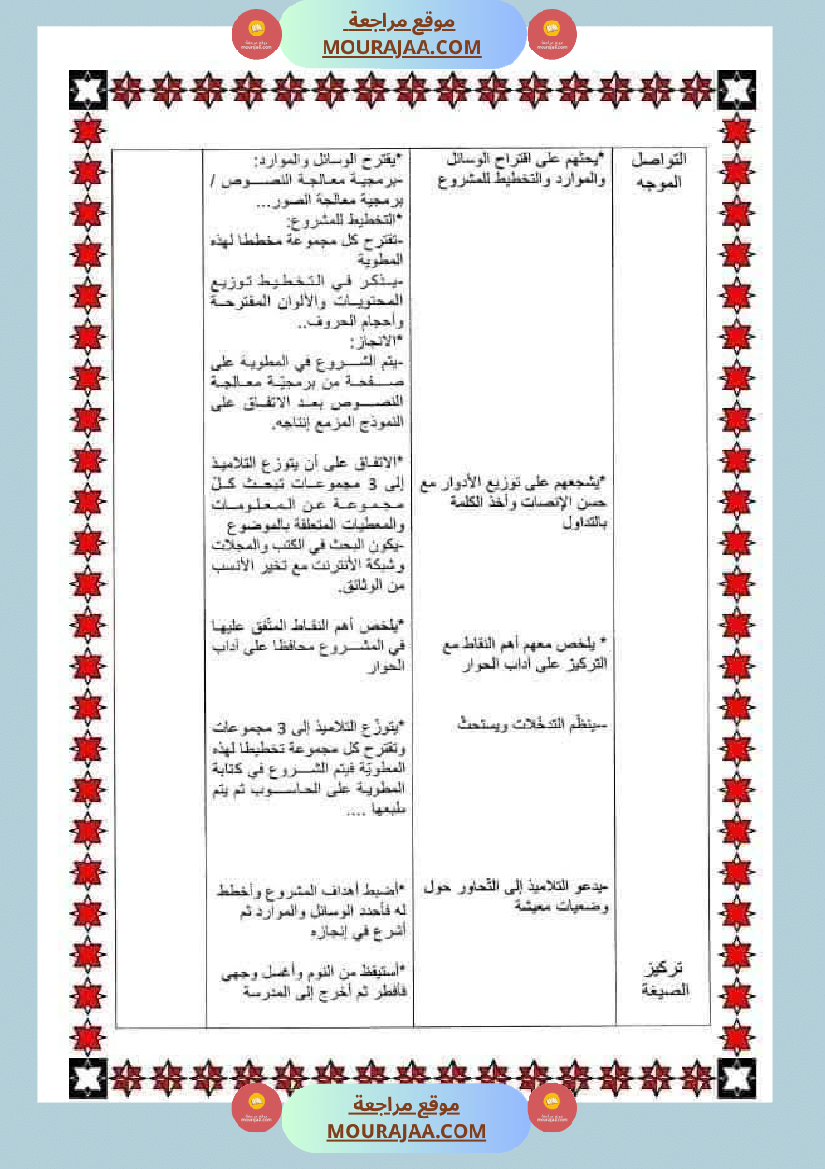 موقع مراجعة
MOURAJAA.COM
التواصل
الموجه
*يحثهم على اقتراح الوسائل
والموارد والتخطيط للمشروع
*يقترح الوسائل والموارد:
-برمجية معالجة النصوص /
برمجية معالجة الصور...
*التخطيط للمشروع:
-تقترح كل مجموعة مخططا لهذه
المطوية
-يذكر في التخطيط توزيع
المحتويات والألوان المقترحة
وأحجام الحروف..
*الانجاز:
-يتم الشروع في المطوية على
صفحة من برمجيّة معالجة
النصوص بعد الاتفاق على
النموذج المزمع إنتاجه.
*يشجعهم على توزيع الأدوار مع
حسن الإنصات وأخذ الكلمة
بالتداول
*الاتفاق على أن يتوزع التلاميذ
إلى 3 مجموعات تبحث كلّ
مجموعة عن المعلومات
والمعطيات المتعلقة بالموضوع
-يكون البحث في الكتب والمجلات
وشبكة الأنترنت مع تخير الأنسب
من الوثائق.
* يلخص معهم أهم النقاط مع
التركيز على آداب الحوار
*يلخص أهم النقاط المتّفق عليها
في المشروع محافظا على آداب
الحوار
--ينظّم التدخّلات ويستحثّ
*يتوزّع التلاميذ إلى 3 مجموعات
وتقترح كل مجموعة تخطيطا لهذه
المطويّة فيتم الشروع في كتابة
المطوية على الحاسوب ثم يتم
طبعها ....
-يدعو التلاميذ إلى التّحاور حول
وضعيات معيشة
*أضبط أهداف المشروع وأخطط
له فأحدد الوسائل والموارد ثم
أشرع في إنجازه
تركيز
الصيغة
*أستيقظ من النوم وأغسل وجهي
فأفطر ثم أخرج إلى المدرسة
موقع مراجعة
MOURAJAA.COM